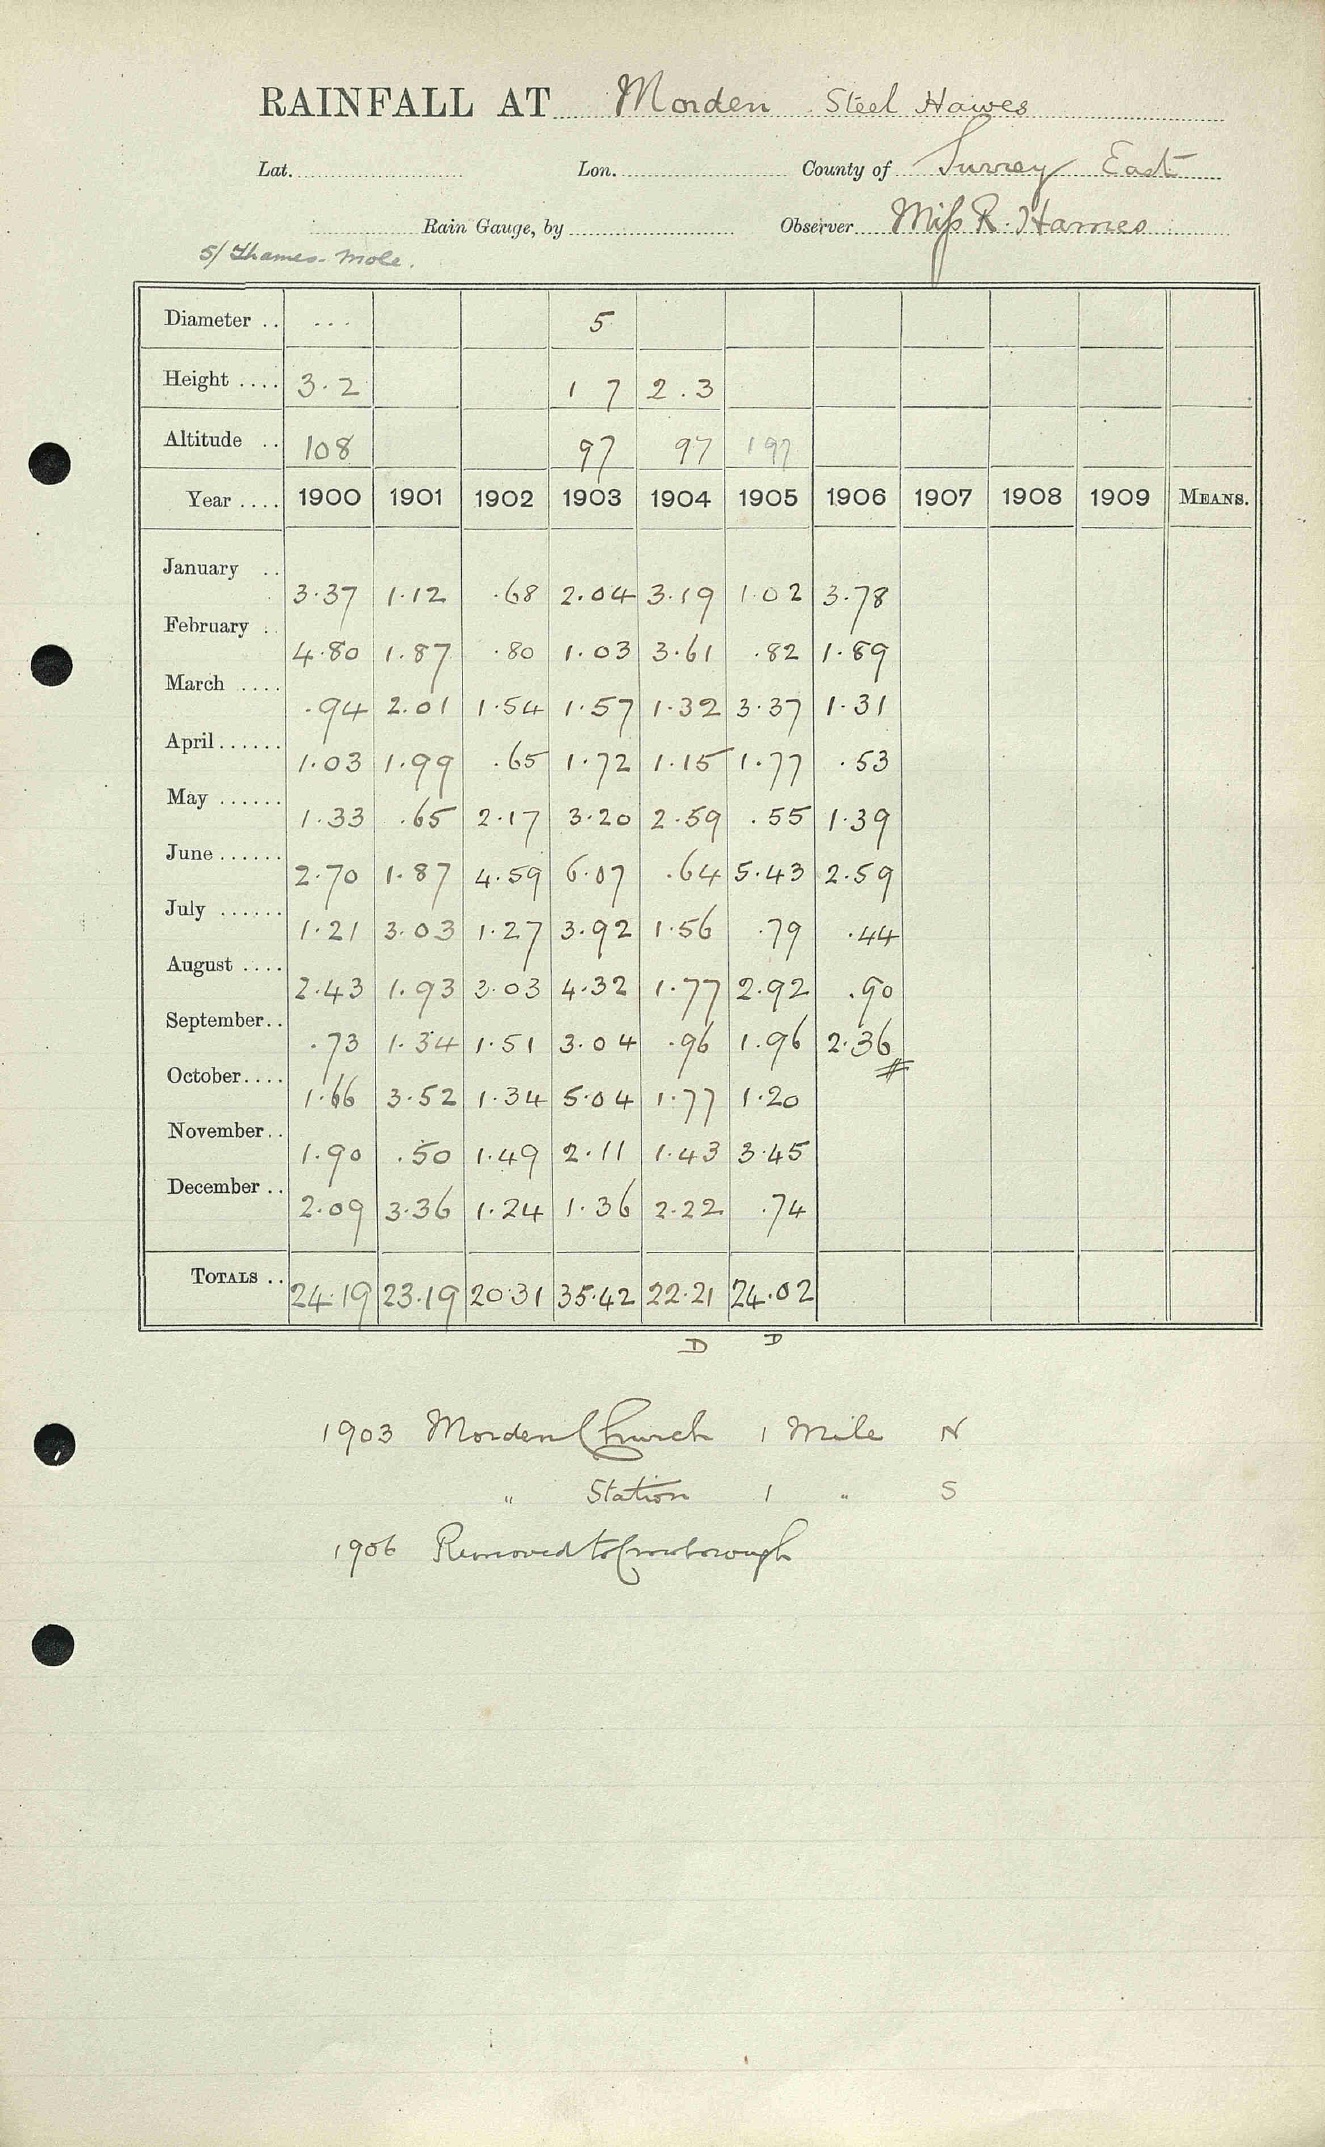 RAINFALL AT Morden Steel Hawes
Lat. Lon. County of Surrey East
Rain Gauge, by Observer Miss R. Hames
5/ Thames-Mole.
Diameter .. ... 5
Height .... 3.2 1 7 2.3
Altitude .. 108 97 97 197
Year .... 1900 1901 1902 1903 1904 1905 1906 1907 1908 1909 MEANS.
January .. 3.37 1.12 .68 2.04 3.19 1.02 3.78
February . 4.80 1.87 .80 1.03 3.61 .82 1.89
March .... .94 2.01 1.54 1.57 1.32 3.37 1.31
April ...... 1.03 1.99 .65 1.72 1.15 1.77 .53
May ...... 1.33 .65 2.17 3.20 2.59 .55 1.39
June ...... 2.70 1.87 4.59 6.07 .64 5.43 2.59
July ...... 1.21 3.03 1.27 3.92 1.56 .79 .44
August .... 2.43 1.93 3.03 4.32 1.77 2.92 .90
September.. .73 1.34 1.51 3.04 .96 1.96 2.36
October.... 1.66 3.52 1.34 5.04 1.77 1.20
November.. 1.90 .50 1.49 2.11 1.43 3.45
December .. 2.09 3.36 1.24 1.36 2.22 .74
TOTALS .. 24.19 23.19 20.31 35.42 22.21 24.02
D D
1903 Morden Church 1 Mile N
" Station 1 " S
1906 Removed to Crowborough